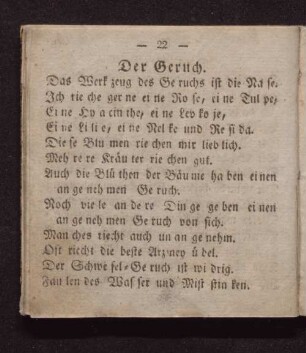 — 22 —
Der Geruch.
Das Werk zeug des Ge ruchs ist die Na se.
Ich rie che ger ne ei ne Ro se, ei ne Tul pe,
Ei ne Hy a cin the, ei ne Lev ko je,
Ei ne Li li e, ei ne Nel ke und Re si da.
Die se Blu men rie chen mir lieb lich.
Meh re re Kräu ter rie chen gut.
Auch die Blü then der Bäu me ha ben ei nen
an ge neh men Ge ruch.
Noch vie le an de re Din ge ge ben ei nen
an ge neh men Ge ruch von sich.
Man ches riecht auch un an ge nehm.
Oft riecht die beste Arzney ü bel.
Der Schwe fel=Ge ruch ist wi drig.
Fau len des Was ser und Mist stin ken.